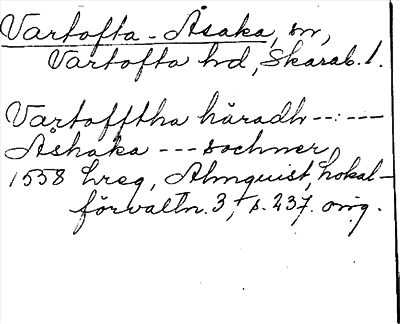 Vartofta-Åsaka, sn,
Vartofta hd, Skarab. l.
Vartofftha häradh --:---
Åshaka --- sochner
1558 hreg, Almquist, Lokal-
förvaltn. 3, s. 237. orig.